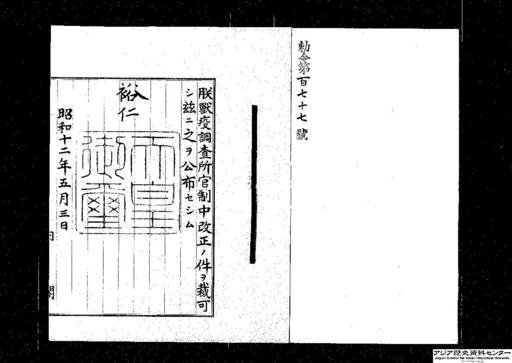 勅令第百七十七號
朕獸疫調査所官制中改正ノ件ヲ裁可
シ茲ニ之ヲ公布セシム
裕仁
天皇
御璽
昭和十二年五月三日
内閣
アジア歴史資料センター
Japan Center for Asian Historical Records